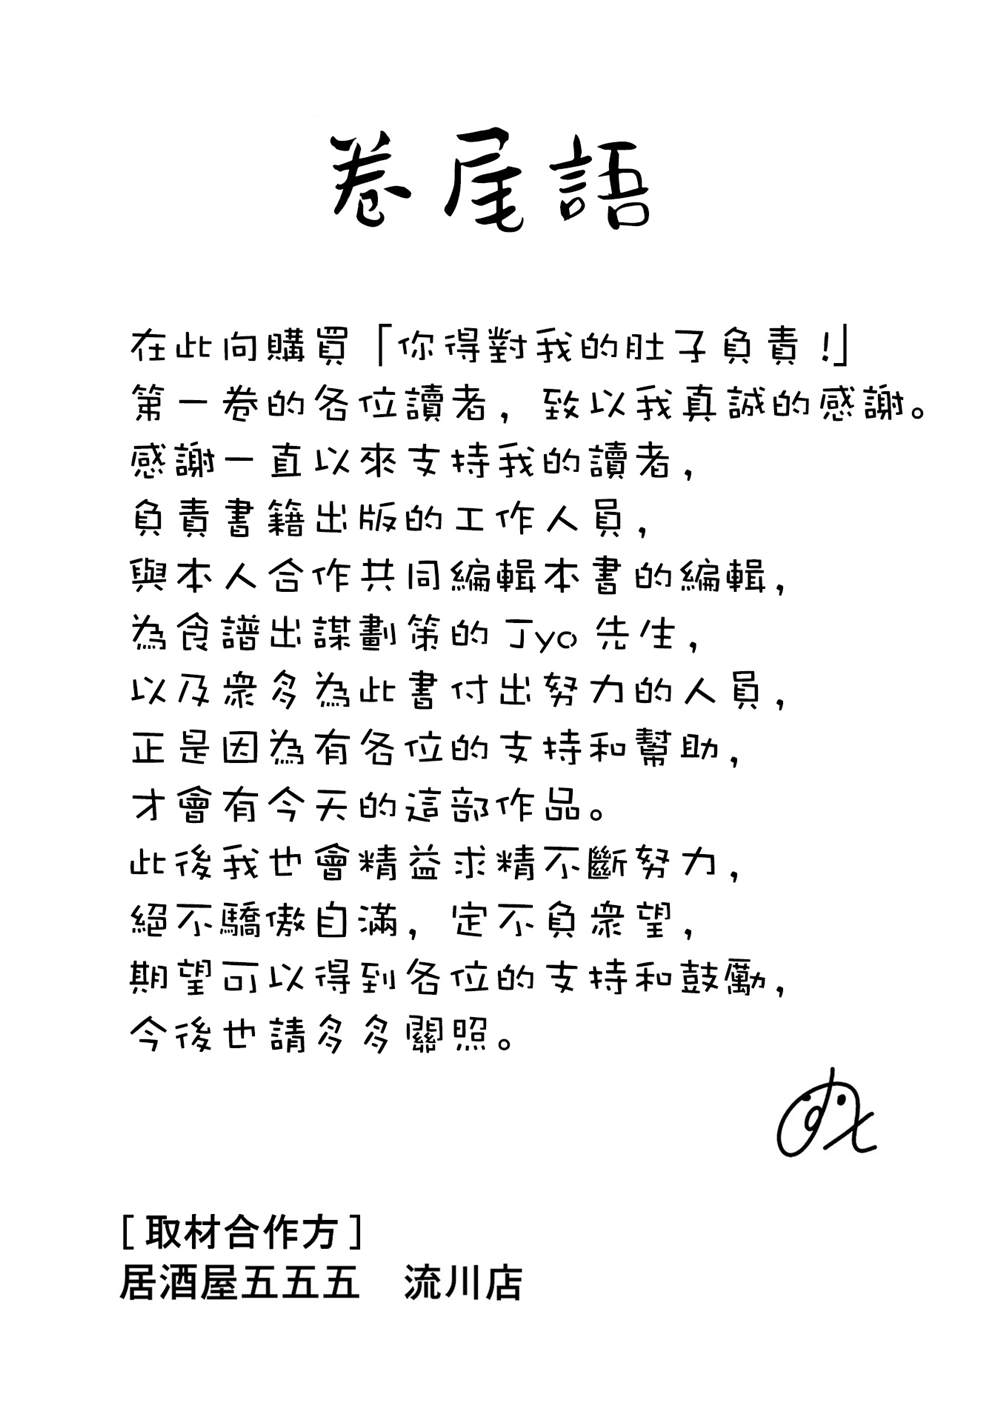 卷尾語
在此向購買「你得對我的肚子負責!」
第一卷的各位讀者，致以我真誠的感謝。
感謝一直以來支持我的讀者，
負責書籍出版的工作人員，
與本人合作共同編輯本書的編輯，
為食譜出謀劃策的Jyo先生，
以及眾多為此書付出努力的人員，
正是因為有各位的支持和幫助，
才會有今天的這部作品。
此後我也會精益求精不斷努力，
絕不驕傲自滿，定不負眾望，
期望可以得到各位的支持和鼓勵，
今後也請多多關照。
[取材合作方]
居酒屋五五五　流川店